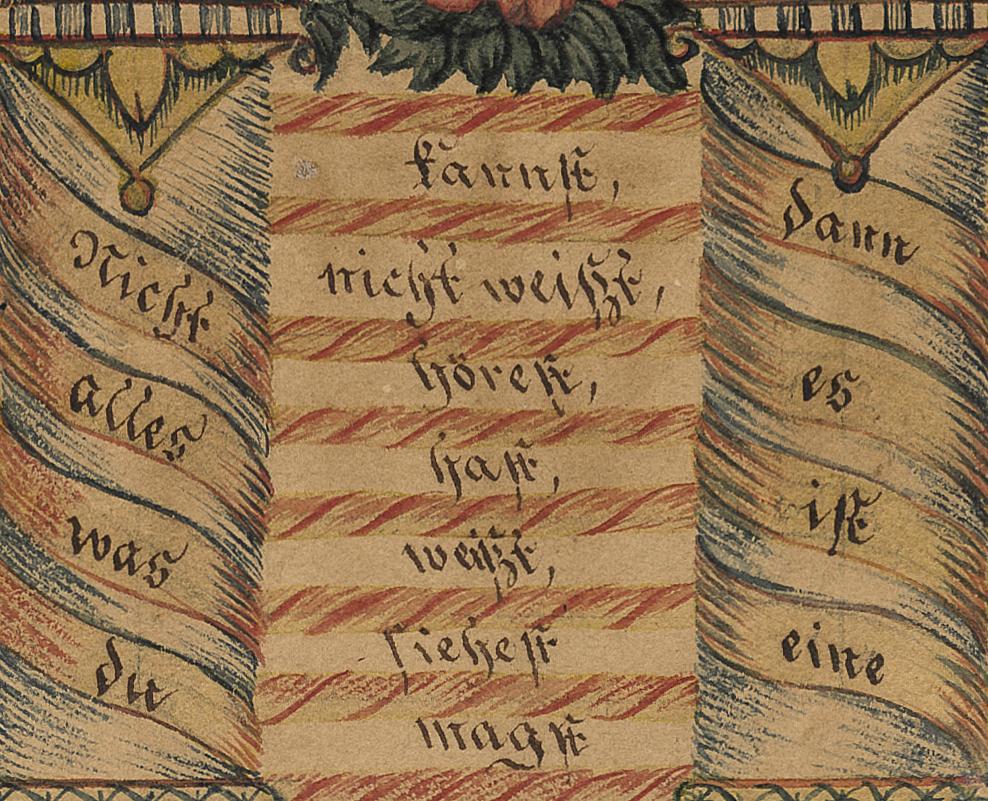 Nicht
alles
was
du
kannst,
nicht weißt,
hörest,
hast,
weißt,
siehest
magst
dann
es
ist
eine